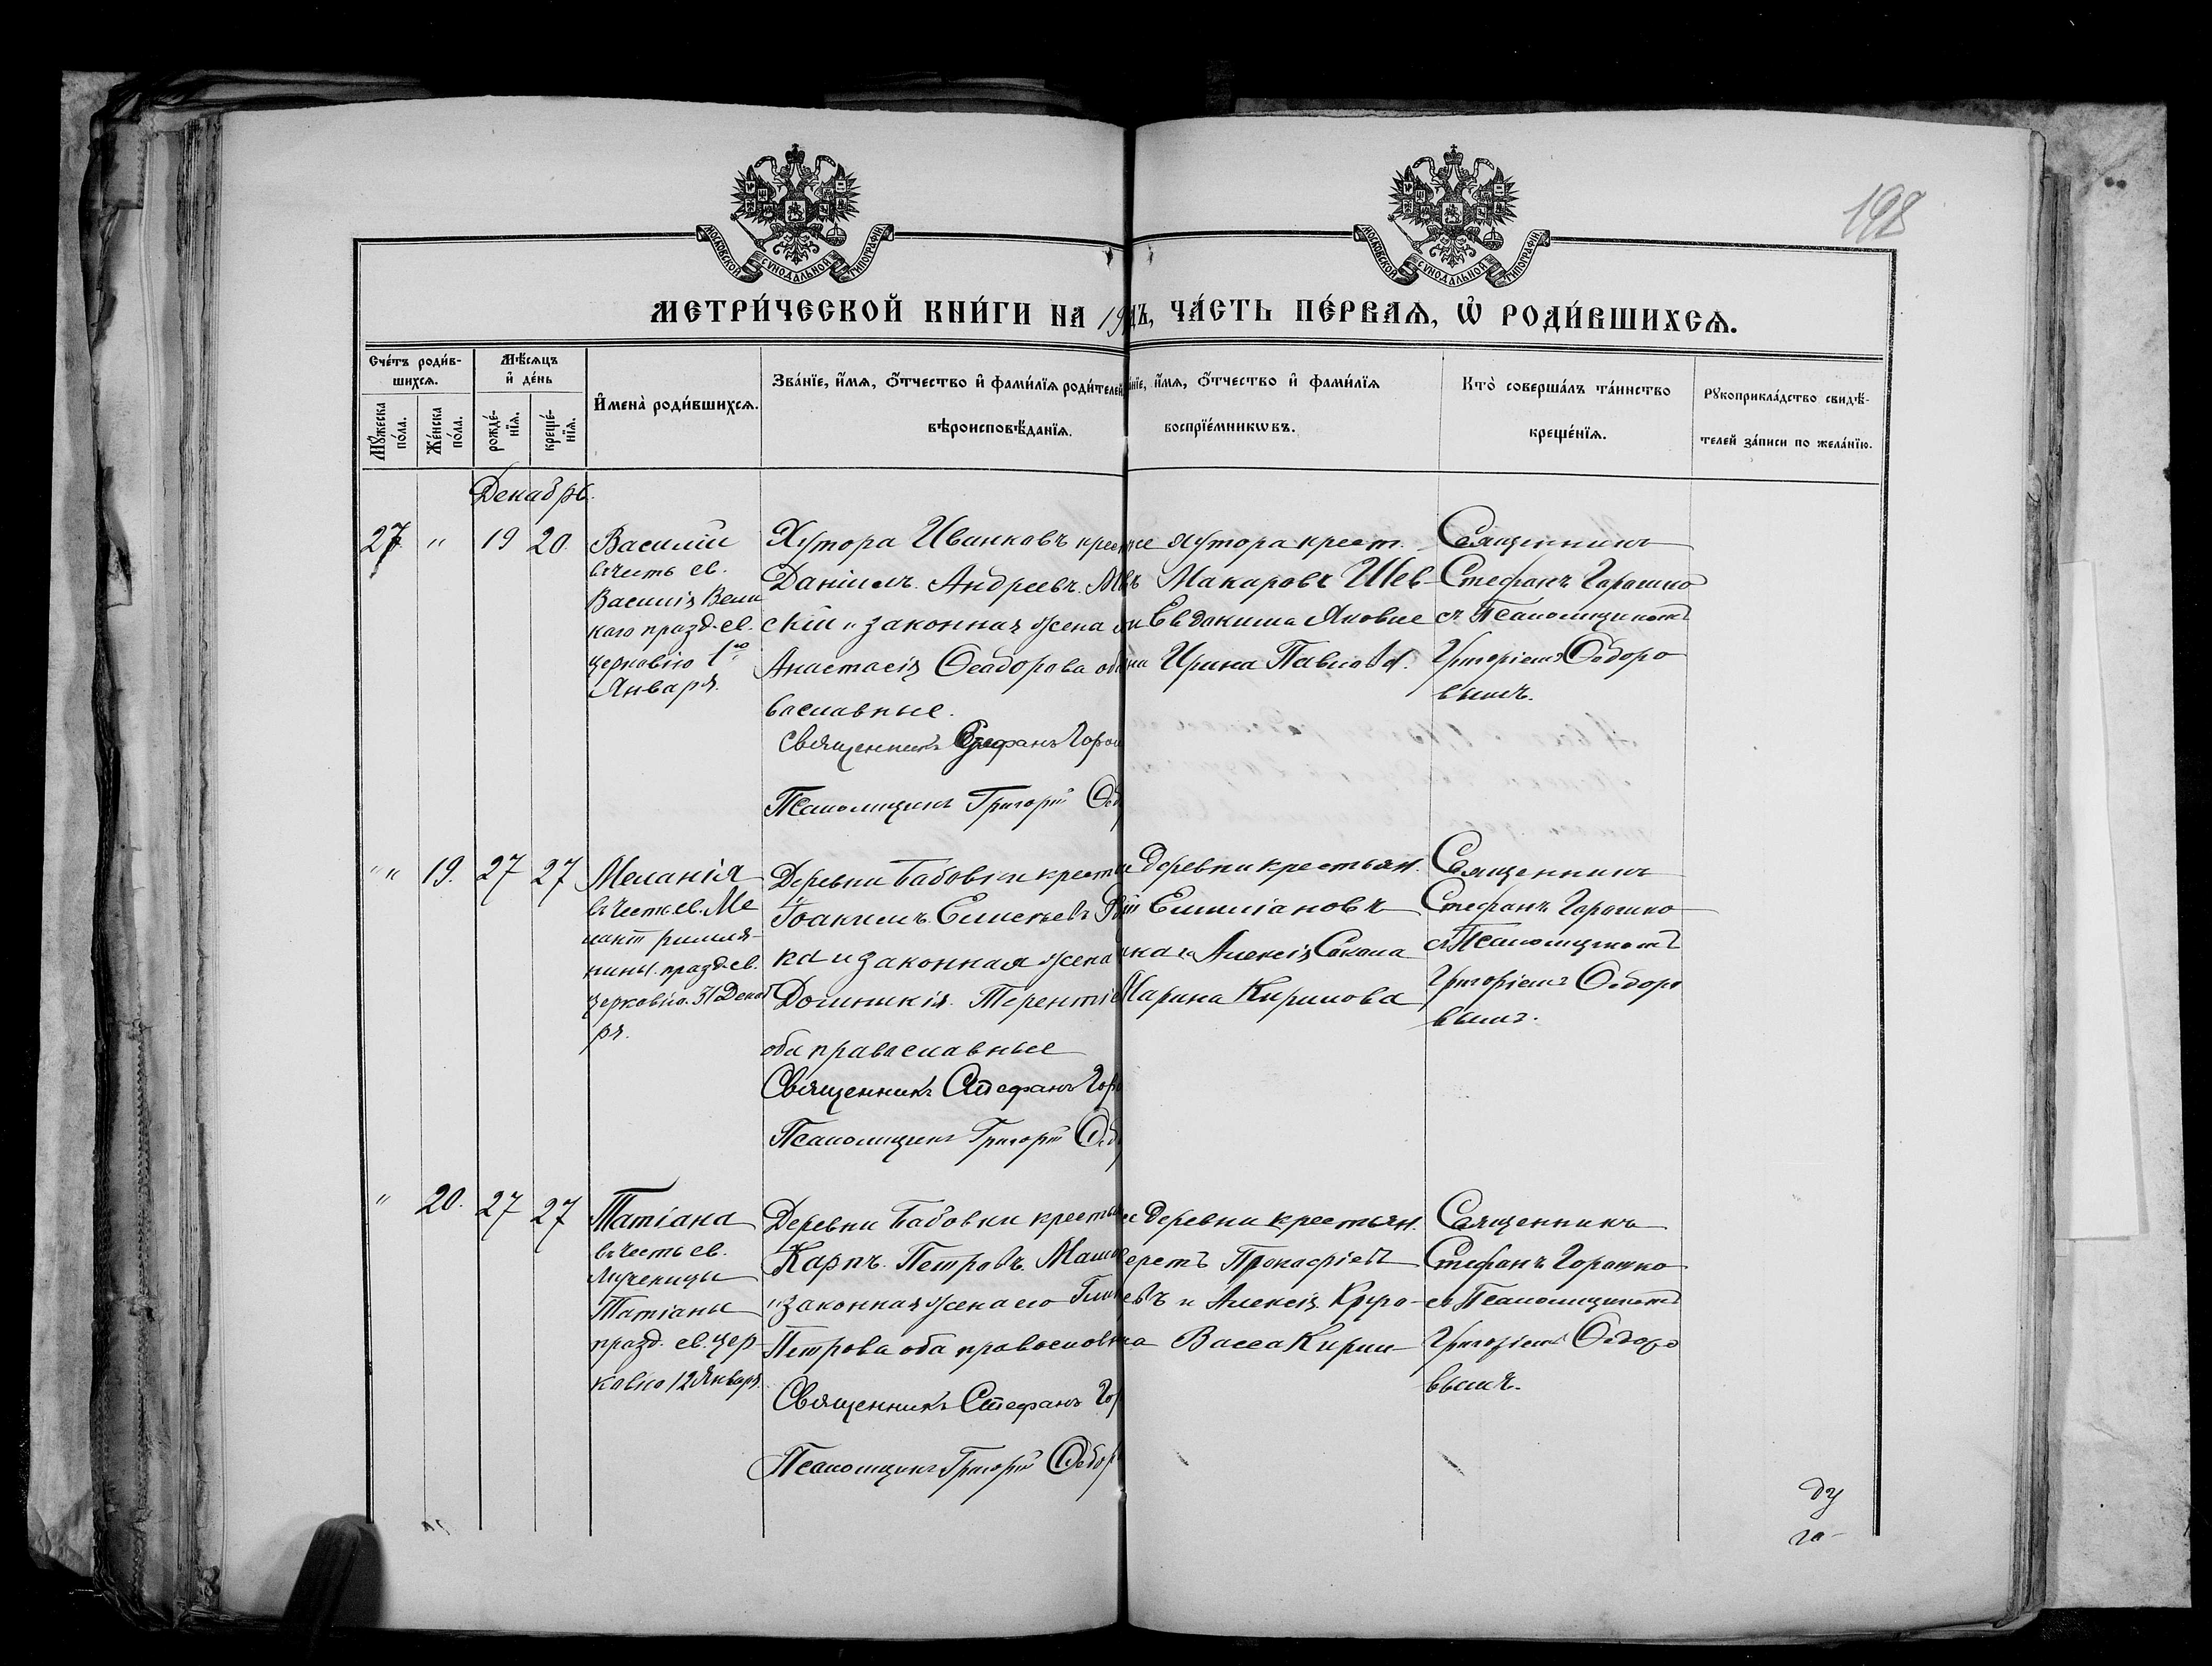 198
МОСКОВСКОЙ СѴНОДАЛЬНОЙ ТИПОГРАФІИ
МОСКОВСКОЙ СѴНОДАЛЬНОЙ ТИПОГРАФІИ
МЕТРИ́ЧЕСКОЙ КНИ́ГИ НА 19
дъ, ЧА́СТЬ ПЕ́РВАѦ, Ѡ҆ РОДИ́ВШИХСѦ.
Сче́тъ роди́в-
шихсѧ.
Мꙋ́жеска по́ла.
Же́нска по́ла.
Мѣ́сѧцъ
и҆ де́нь
рожде́-
нїѧ.
креще́-
нїѧ.
И҆мена̀ роди́вшихсѧ.
Зва́нїе, и҆́мѧ, ѻ҆́тчество и҆ фами́лїѧ роди́телей
вѣроисповѣ́данїѧ.
а́нїе, и҆́мѧ, ѻ҆́тчество и҆ фами́лїѧ
воспрїе́мникѡвъ.
Кто̀ соверша́лъ та́инство
креще́нїѧ.
Рꙋкоприкла́дство свидѣ́-
телей за́писи по жела́нїю.
Декабрь.
27 " 19 20.
Василій
въ честь св.
Василія Вели
каго празд. св.
церковію 1го
Января.
Хутора Иванковъ крес
Даніилъ Андреевъ М
скій и законная жена
Анастасія Ѳеодорова об
вославные.
Священникъ Стефанъ Горош
Псаломщикъ Григорій Ѳед
же хутора крест.
Макаровъ Шев-
и Евдокима Яковле
на Ирина Павлова.
Священникъ
Стефанъ Горошко
съ Псаломщикомъ
Григоріемъ Ѳедоро
вымъ.
" " 19. 27 27
Меланія
въ честь св. Ме
ланіи римля-
нины празд. св.
церковію 31 Декаб
ря.
Деревни Бабовки крест
Іоакимъ Елисеевъ
ка и законная жена
Доминикія Терентіе
оба православные
Священникъ Стефанъ Горо
Псаломщикъ Григорій Ѳед
Деревни крестьян.
Емиліановъ
Алексія Сокола
Марина Кирилова
Священникъ
Стефанъ Горошко
съ Псаломщикомъ
Григоріемъ Ѳедоро
вымъ.
" 20. 27 27
Татіана
въ честь св.
Мученицы
Татіаны
празд. св. цер
ковію 12 Января.
Деревни Бабовки крестья
Карпъ Петровъ Маш
и законная жена его
Петрова оба православн
Священникъ Стефанъ Гор
Псаломщикъ Григорій Ѳедор
Деревни крестьян.
Прокофіев
евъ и Алексія
Васса Кирил
Священникъ
Стефанъ Горошко
съ Псаломщикомъ
Григоріемъ Ѳедоро
вымъ.